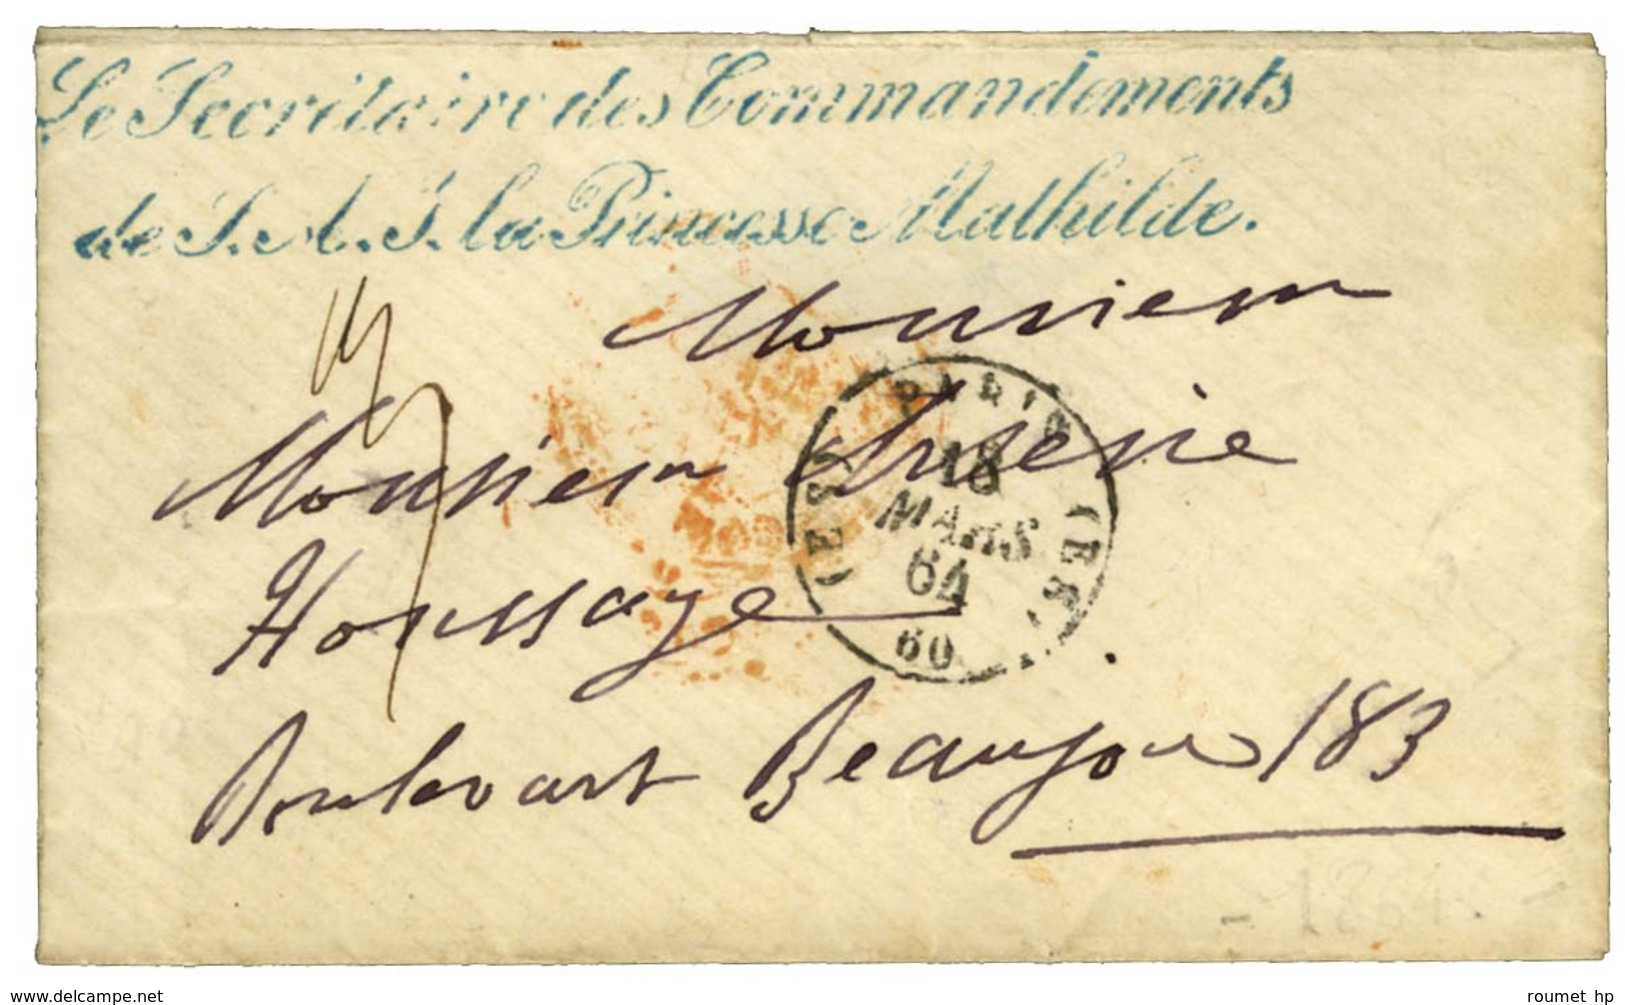 Le Secrétaire des Commandements
de S.A.I. la Princesse Mathilde.
Monsieur
Monsieur Arsène
Houssaye
Boulevart Beaujon 183
PARIS
(E S)
18
MARS
64
60
roumet hp